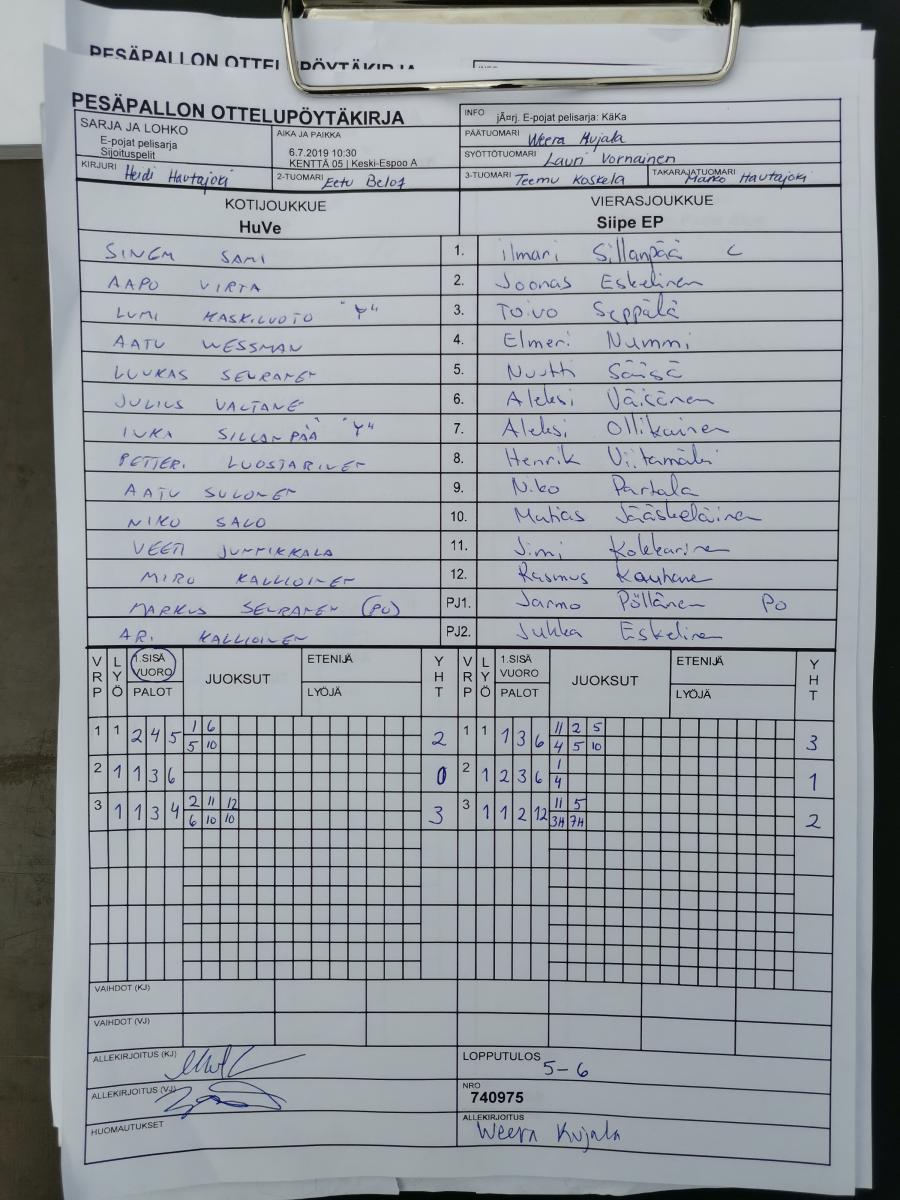 PESÄPALLON OTTELUPÖYTÄKIRJA
INFO
PESÄPALLON OTTELUPÖYTÄKIRJA
INFO jÃ¤rj. E-pojat pelisarja: KäKa
SARJA JA LOHKO
E-pojat pelisarja
Sijoituspelit
AIKA JA PAIKKA
6.7.2019 10:30
KENTTÄ 05 | Keski-Espoo A
PÄÄTUOMARI Weera Kujala
SYÖTTÖTUOMARI Lauri Vornainen
KIRJURI Heidi Hautajoki
2-TUOMARI Eetu Belof
3-TUOMARI Teemu Koskela
TAKARAJATUOMARI Marko Hautajoki
KOTIJOUKKUE
HuVe
VIERASJOUKKUE
Siipe EP
SINEM SAMI 1. ilmari Sillanpää C
AAPO VIRTA 2. Joonas Eskelinen
LUMI KASKILUOTO "Y" 3. Toivo Seppälä
AATU WESSMAN 4. Elmeri Nummi
LUUKAS SEURANEN 5. Nuutti Säisä
JULIUS VALTANE 6. Aleksi Väisänen
IUKA SILLANPÄÄ "Y" 7. Aleksi Ollikainen
PETTERI LUOSTARINEN 8. Henrik Viitamäki
AATU SULONEN 9. Niko Partala
NIKO SALO 10. Matias Jääskeläinen
VEETI JUNTIKKALA 11. Jimi Kokkarinen
MIRO KALLIOINEN 12. Rasmus Kauhane
MARKUS SEURANEN (PJ) PJ1. Jarmo Pöllänen PO
ARI KALLIOINEN PJ2. Jukka Eskelinen
VRP LYÖ 1.SISÄ VUORO PALOT JUOKSUT ETENIJÄ LYÖJÄ YHT VRP LYÖ 1.SISÄ VUORO PALOT JUOKSUT ETENIJÄ LYÖJÄ YHT
1 1 2 4 5 1 6 2 1 1 1 3 6 11 2 5 3
5 10 4 5 10
2 1 1 3 6 0 2 1 2 3 6 1 1
4
3 1 1 3 4 2 11 12 3 3 1 1 2 12 11 5 2
6 10 10 3H 7H
VAIHDOT (KJ)
VAIHDOT (VJ)
ALLEKIRJOITUS (KJ)
LOPPUTULOS
5-6
ALLEKIRJOITUS (VJ)
NRO
740975
HUOMAUTUKSET
ALLEKIRJOITUS
Weera Kujala